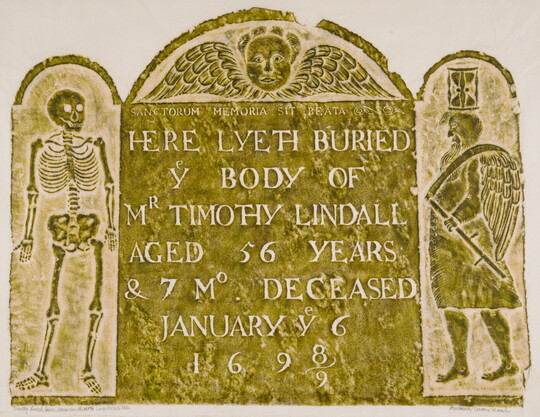 SANCTORUM MEMORIA SIT BEATA
HERE LYETH BURIED
yͤ BODY OF
Mᴿ TIMOTHY LINDALL
AGED 56 YEARS
& 7 Mᵒ. DECEASED
JANUARY yͤ 6
1 6 9 8/9